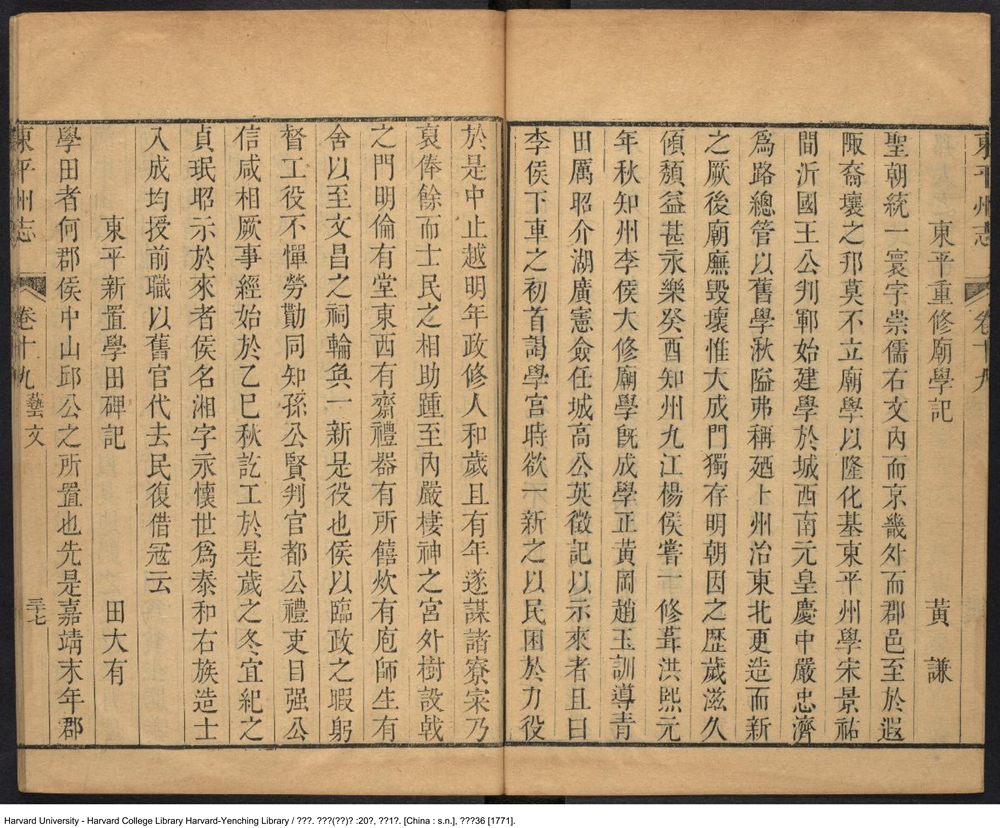 東平州志 卷十九
東平重修廟學記 黃謙
聖朝統一寰宇崇儒右文內而京畿外而郡邑至於遐
陬裔壤之邦莫不立廟學以隆化基東平州學宋景祐
間沂國王公判鄆始建學於城西南元皇慶中嚴忠濟
爲路總管以舊學湫隘弗稱廼卜州治東北更造而新
之厥後廟廡毀壞惟大成門獨存明朝因之歷歲滋久
傾頹益甚永樂癸酉知州九江楊侯嘗一修葺洪熙元
年秋知州李侯大修廟學旣成學正黃岡趙玉訓導青
田厲昭介湖廣憲僉任城高公英徵記以示來者且曰
李侯下車之初首謁學宮時欲一新之以民困於力役
於是中止越明年政修人和歲且有年遂謀諸寮寀乃
裒俸餘而士民之相助踵至內嚴棲神之宮外樹設戟
之門明倫有堂東西有齋禮器有所饎炊有庖師生有
舍以至文昌之祠輪奐一新是役也侯以臨政之暇躬
督工役不憚勞勩同知孫公賢判官都公禮吏目强公
信咸相厥事經始於乙巳秋訖工於是歲之冬宜紀之
貞珉昭示於來者侯名湘字永懷世爲泰和右族造士
入成均授前職以舊官代去民復借寇云
東平新置學田碑記 田大有
學田者何郡侯中山邱公之所置也先是嘉靖末年郡
東平州志 卷十九 藝文 三十七
Harvard University - Harvard College Library Harvard-Yenching Library / ???. ???(??)? :20?, ??1?. [China : s.n.], ???36 [1771].